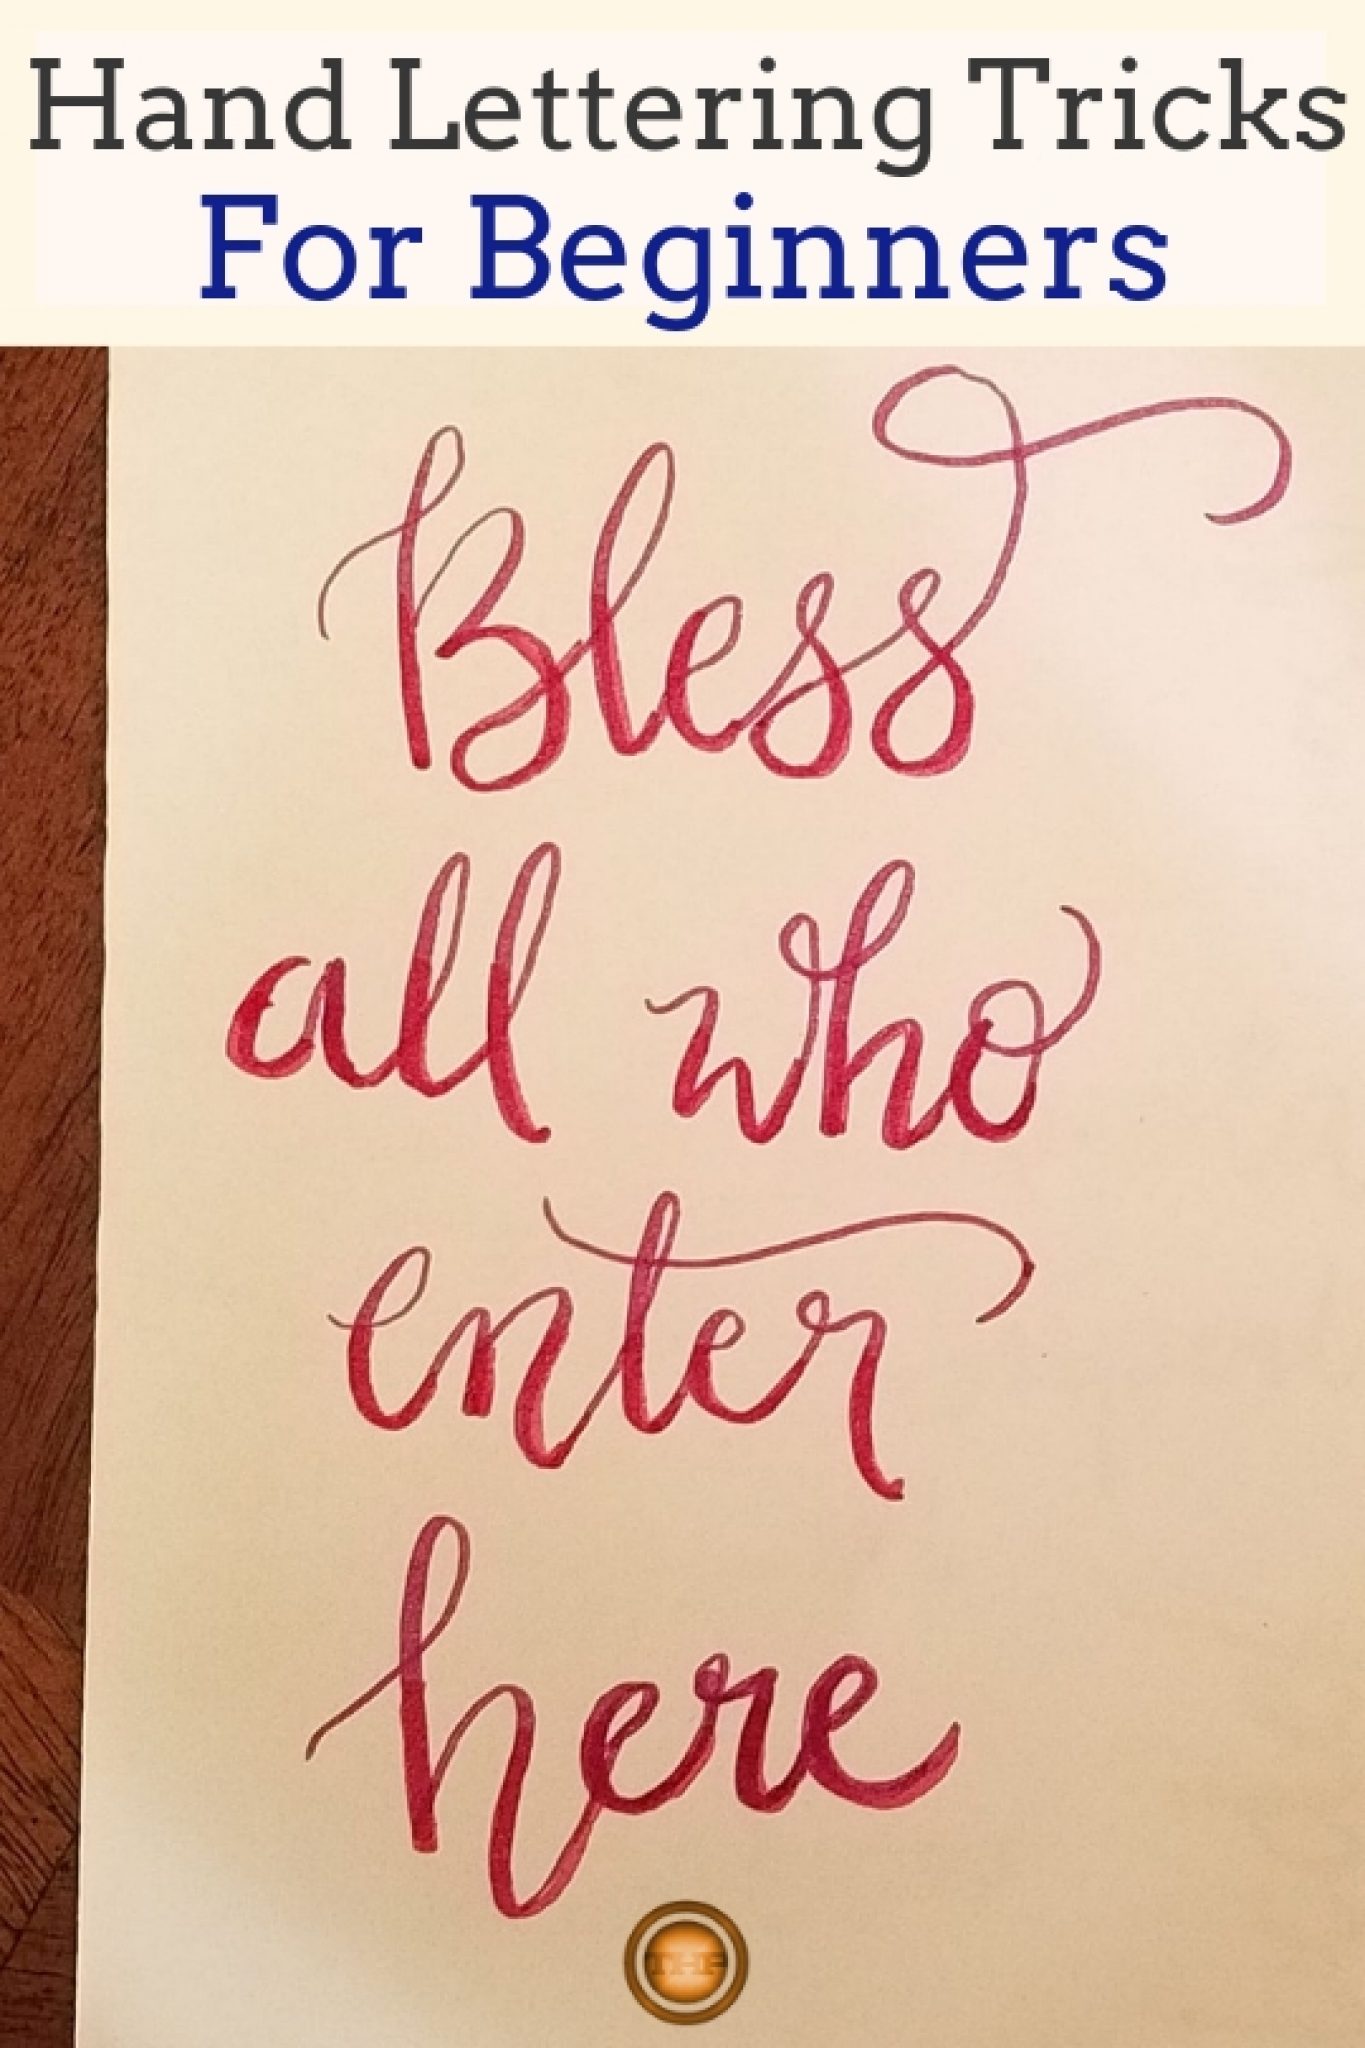 Hand Lettering Tricks
For Beginners
Bless
all who
enter
here
THP